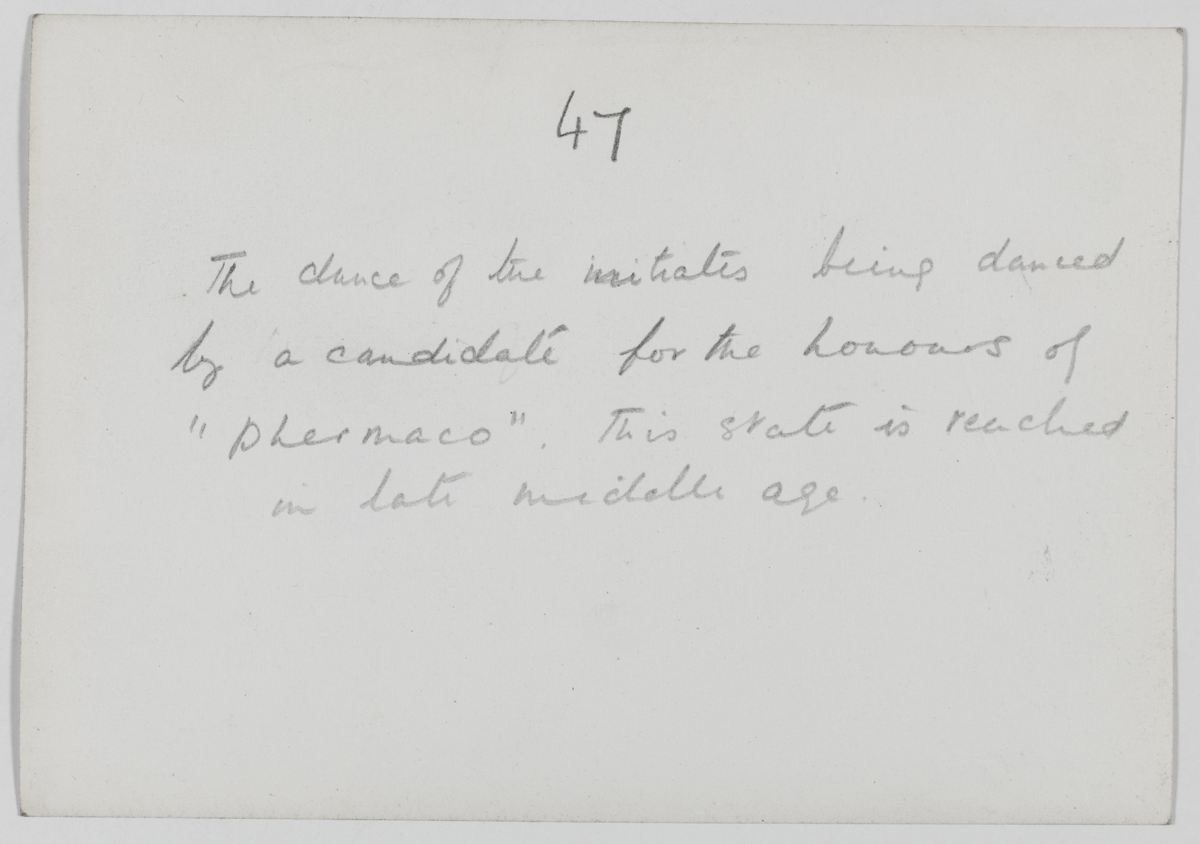 47
The dance of the initiates being danced
by a candidate for the honours of
"phermaco". This state is reached
in late middle age.